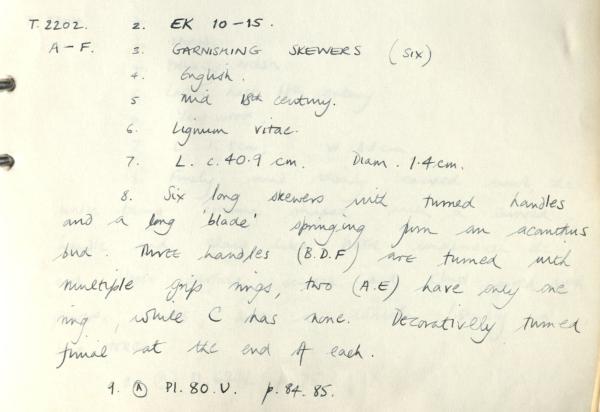 T.2202. 2. EK 10-15.
A-F. 3. GARNISHING SKEWERS (SIX)
4. English.
5 Mid 18th century.
6. Lignum vitae.
7. L. c. 40.9 cm. Diam. 1.4cm.
8. Six long skewers with turned handles
and a long 'blade' springing from an acanthus
bud. Three handles (B.D.F) are turned with
multiple grip rings, two (A.E) have only one
ring, while C has none. Decoratively turned
finial at the end of each.
9. (A) Pl. 80. V. p. 84. 85.